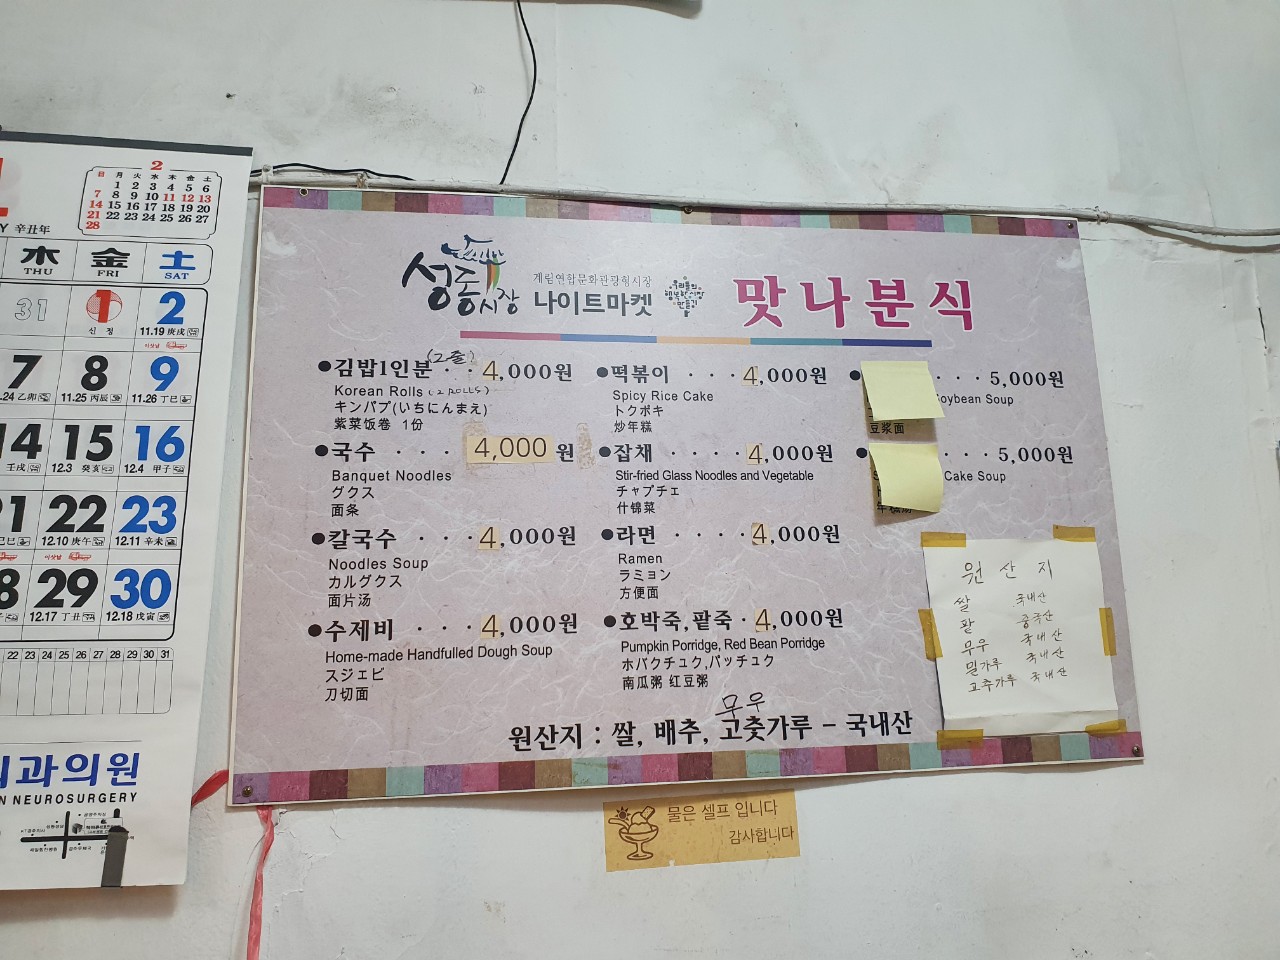 2
日 月 火 水 木 金 土
1 2 3 4 5 6
7 8 9 10 11 12 13
14 15 16 17 18 19 20
21 22 23 24 25 26 27
28
辛丑年
木 金 土
THU FRI SAT
31 1 2
신정
11.19 庚戌
7 8 9
11.25 丙辰 11.26 丁巳
14 15 16
壬戌 12.3 癸亥 12.4 甲子
22 23
12.10 庚午 12.11 辛未
29 30
12.17 丁丑 12.18 戊寅
22 23 24 25 26 27 28 29 30 31
과의원
NEUROSURGERY
성동시장
계림연합문화관광형시장
나이트마켓
맛나분식
●김밥1인분(2줄) · · 4,000원
Korean Rolls (2 ROLLS)
キンパプ(いちにんまえ)
紫菜饭卷 1份
●국수 · · · · 4,000 원
Banquet Noodles
グクス
面条
●칼국수 · · · 4,000원
Noodles Soup
カルグクス
面片汤
●수제비 · · · 4,000원
Home-made Handfulled Dough Soup
スジェビ
刀切面
●떡볶이 · · · 4,000원
Spicy Rice Cake
トクポキ
炒年糕
●잡채 · · · · 4,000원
Stir-fried Glass Noodles and Vegetable
チャプチェ
什锦菜
●라면 · · · · 4,000원
Ramen
ラミョン
方便面
●호박죽,팥죽 · 4,000원
Pumpkin Porridge, Red Bean Porridge
ホバクチュク,パッチュク
南瓜粥 红豆粥
● · · · 5,000원
oybean Soup
豆浆面
● · · · 5,000원
Cake Soup
무우
원산지 : 쌀, 배추, 고춧가루 – 국내산
원산지
쌀 국내산
팥 중국산
무우 국내산
밀가루 국내산
고추가루 국내산
물은 셀프 입니다
감사합니다